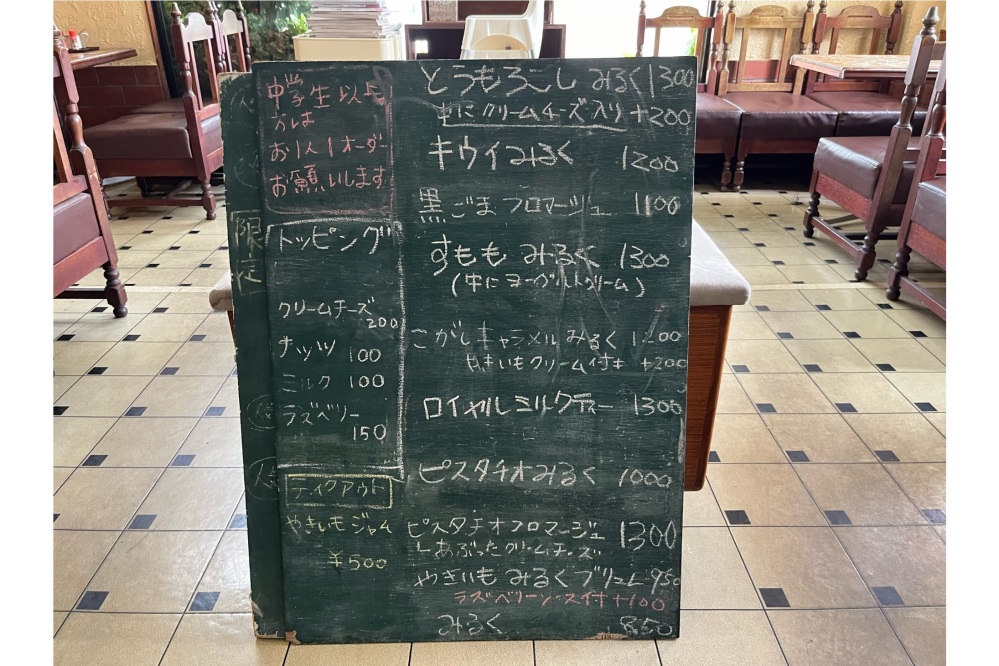 中学生以上
方は
お1人1オーダー
お願いします
限定
トッピング
クリームチーズ
200
ナッツ 100
ミルク 100
ラズベリー
150
テイクアウト
やきいもジャム
¥500
とうもろこし みるく 1300
中にクリームチーズ入り +200
キウイみるく 1200
黒ごまフロマージュ 1100
すもも みるく 1300
(中にヨーグルトクリーム)
こがしキャラメルみるく 1200
やきいもクリーム付き +200
ロイヤルミルクティー 1300
ピスタチオみるく 1000
ピスタチオフロマージュ 1300
あぶったクリームチーズ
やきいもみるくブリュレ 950
ラズベリーソース付 +100
みるく 850